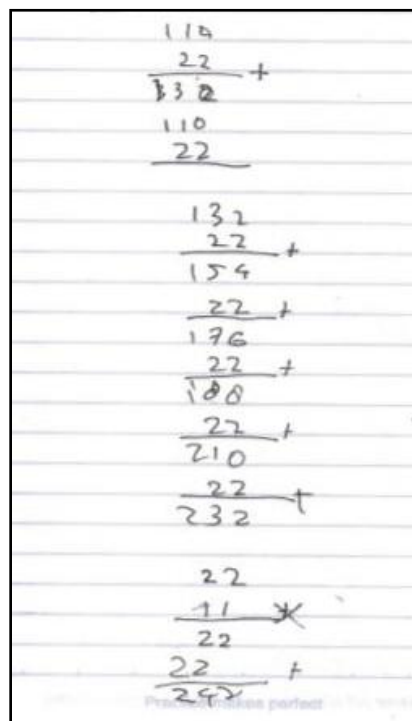 110
22 +
132
110
22
132
22 +
154
22 +
176
22 +
188
22 +
210
22 +
232
22
11 *
22
22 +
242
Practice makes perfect